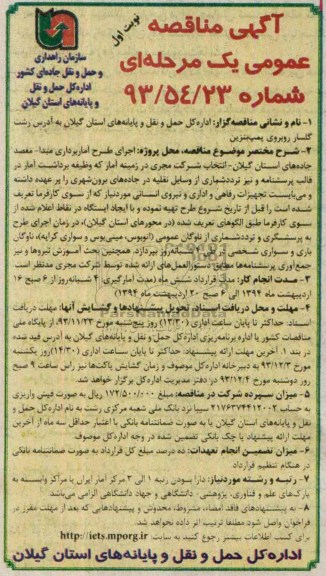 آگهی مناقصه
نوبت اول
عمومی یک مرحله‌ای
شماره ۹۳/۵٤/۲۳
سازمان راهداری
و حمل و نقل جاده‌ای کشور
اداره کل حمل و نقل
و پایانه‌های استان گیلان
۱- نام و نشانی مناقصه‌گزار: اداره کل حمل و نقل و پایانه‌های استان گیلان به آدرس رشت
گلسار روبروی پمپ بنزین
۲- شرح مختصر موضوع مناقصه، محل پروژه: اجرای طرح آماربرداری مبدا- مقصد
جاده‌های استان گیلان- انتخاب شرکت مجری در زمینه آمار که وظیفه برداشت آمار در
قالب پرسشنامه و نیز ترددشماری از وسایل نقلیه در جاده‌های برون‌شهری را بر عهده داشته
و می‌بایست تجهیزات رفاهی و اداری و نیروی انسانی موردنیاز که از سوی کارفرما تعریف
شده است را قبل از تاریخ شروع طرح تهیه نموده و با ایجاد ایستگاه در نقاط اعلام شده از
سوی کارفرما طبق الگوهای تعریف شده (در محورهای استان گیلان)، در زمان اجرای طرح
به پرسشگری و ترددشماری از ناوگان عمومی (اتوبوس، مینی‌بوس و سواری کرایه)، ناوگان
باری و سواری شخصی شبانه‌روز بپردازد. همچنین بحث آموزش نیروها و نیز
جمع‌آوری پرسشنامه‌ها مطابق دستورالعمل‌های ارائه شده توسط شرکت مجری مدنظر است
۳- مدت انجام کار: مدت قرارداد شش ماه (مدت آمارگیری: ٤ شبانه‌روز از ۶ صبح ۱۶
اردیبهشت ماه ۱۳۹۴ الی ۶ صبح ۲۰ اردیبهشت ماه ۱۳۹۴)
۴- مهلت و محل دریافت اسناد، تحویل پیشنهادها و گشایش آنها: مهلت دریافت
اسناد: حداکثر تا پایان ساعت اداری (۱۳:۳۰) روز پنج‌شنبه مورخ ۹۳/۱۱/۲۳ از پایگاه ملی
مناقصات کشور یا اداره برنامه‌ریزی اداره کل حمل و نقل و پایانه‌های گیلان به آدرس قید شده
در بند ۱. آخرین مهلت ارائه پیشنهاد: حداکثر تا پایان ساعت اداری (۱۴:۳۰) روز یکشنبه
مورخ ۹۳/۱۲/۳ به دبیرخانه اداره کل موصوف و زمان گشایش پاکت‌ها نیز راس ساعت ۹ صبح
روز دوشنبه مورخ ۹۳/۱۲/۴ در دفتر مدیریت اداره کل برگزار خواهد شد.
۵- میزان سپرده شرکت در مناقصه: مبلغ ۱۷۲/۵۰۰/۰۰۰ ریال به صورت فیش واریزی
به حساب ۲۱۷۶۳۷۴۴۱۲۰۰۲ سیبا نزد بانک ملی شعبه مرکزی رشت به نام اداره کل حمل و
نقل و پایانه‌های استان گیلان یا به صورت ضمانتنامه بانکی با اعتبار حداقل سه ماه از آخرین
مهلت ارائه پیشنهاد یا چک بانکی تضمین شده در وجه اداره کل موصوف
۶- میزان تضمین انجام تعهدات: ده درصد مبلغ کل قرارداد به صورت ضمانتنامه بانکی
در هنگام تنظیم قرارداد
۷- رتبه و رشته موردنیاز: دارا بودن رتبه ۱ الی ۳ مرکز آمار ایران یا مراکز وابسته به
پارک‌های علم و فناوری، پژوهشی، دانشگاهی و جهاد دانشگاهی الزامی می‌باشد
۸- به پیشنهادهای فاقد امضاء، مشروط، مخدوش و پیشنهادهایی که بعد از مهلت مقرر در
فراخوان واصل شود مطلقا ترتیب اثر داده نخواهد شد.
برای کسب اطلاعات بیشتر رجوع کنید به سایت http://iets.mporg.ir
اداره کل حمل و نقل و پایانه‌های استان گیلان